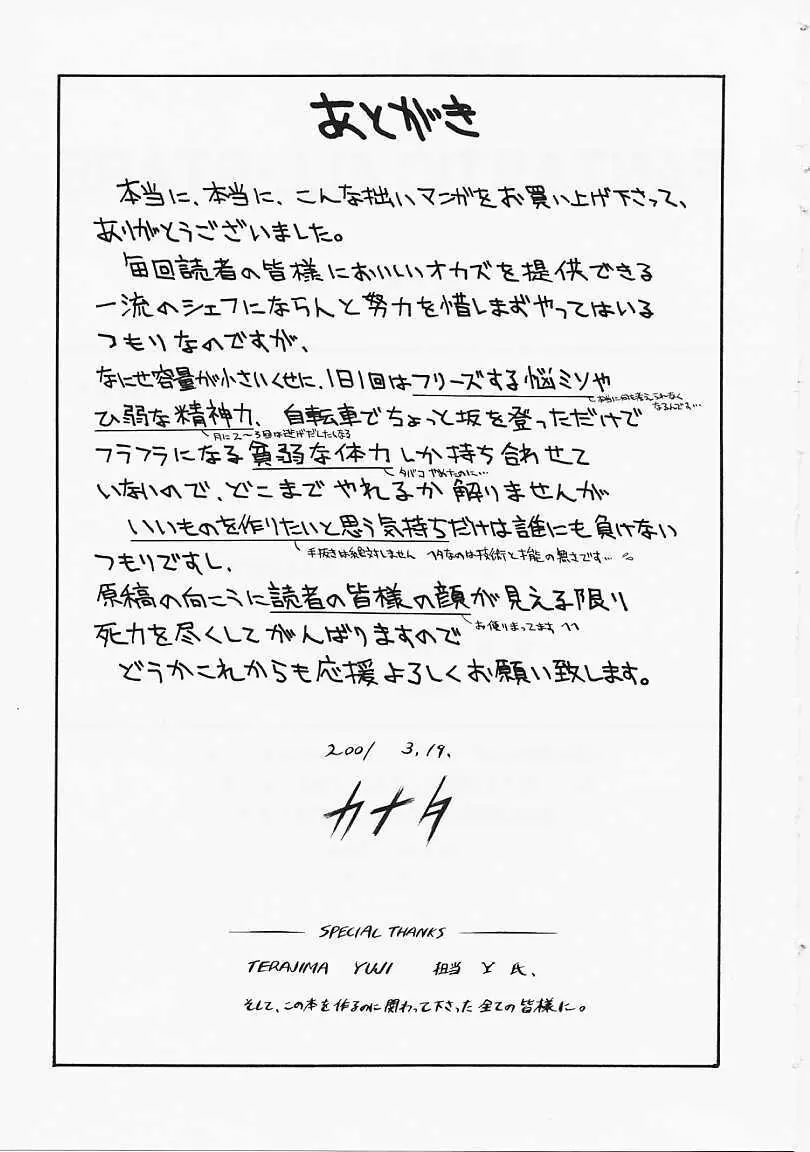 あとがき
本当に、本当に、こんな拙いマンガをお買い上げ下さって、
ありがとうございました。
毎回読者の皆様においしいオカズを提供できる
一流のシェフにならんと努力を惜しまずやってはいる
つもりなのですが、
なにせ容量が小さいくせに、1日1回はフリーズする悩ミソや
本当に何も考えられなく
なるんです…
ひ弱な精神力、自転車でちょっと坂を登っただけで
月に2〜3回は逃げだしたくなる
フラフラになる貧弱な体力しか持ち合わせて
タバコやめたのに…
いないので、どこまでやれるか解りませんが
いいものを作りたいと思う気持ちだけは誰にも負けない
手抜きは絶対しません ヘタなのは技術と才能の無さです…
つもりですし、
原稿の向こうに読者の皆様の顔が見える限り
お便りまってます ^^
死力を尽くしてがんばりますので
どうかこれからも応援よろしくお願い致します。
2001 3,19.
カナタ
SPECIAL THANKS
TERAJIMA YUJI 担当 Y 氏、
そして、この本を作るのに関わって下さった全ての皆様に。